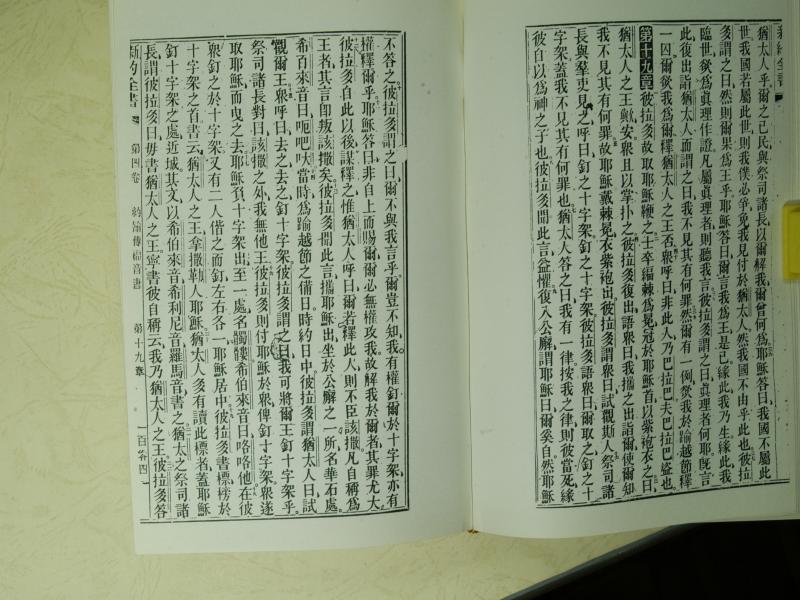 新約全書
猶太人乎爾之己民與祭司諸長以爾解我爾曾何為耶穌答曰我國不屬此
世我國若屬此世則我僕必爭免我見付於猶太人然我國不由乎此也彼拉
多謂之曰然則爾果為王乎耶穌答曰爾言我為王是已緣此我乃生緣此我
臨世欲為真理作證凡屬真理者則聽我言彼拉多謂之曰真理者何耶既言
此復出語猶太人而謂之曰我不見其有何罪然爾有一例欲我於踰越節釋
一囚爾欲我為爾釋猶太人之王否眾呼曰非此人乃巴拉巴夫巴拉巴盜也
第十九章彼拉多故取耶穌鞭之士卒編棘為冕冠於耶穌首以紫袍衣之曰
猶太人之王歟安眾且以掌扑之彼拉多復出語眾曰我攜之出詣爾使爾知
我不見其有何罪故耶穌戴棘冕衣紫袍出彼拉多謂眾曰試觀斯人祭司諸
長與羣吏見之呼曰釘之十字架釘之十字架彼拉多語眾曰爾取之釘之十
字架蓋我不見其有何罪也猶太人答之曰我有一律按我之律則彼當死緣
彼自以為神之子也彼拉多聞此言益懼復入公廨謂耶穌曰爾奚自然耶穌
不答之彼拉多謂之曰爾不與我言乎爾豈不知我有權釘爾於十字架亦有
權釋爾乎耶穌答曰非自上而賜爾爾必無權攻我故解我於爾者其罪尤大
彼拉多自此以後謀釋之惟猶太人呼曰爾若釋此人則不臣該撒凡自稱為
王者其言卽叛該撒矣彼拉多聞此言攜耶穌出坐於公廨之一所名華石處
希伯來音曰呃吧吠大當時為踰越節之備日時約日中彼拉多謂猶太人曰試
觀爾王眾呼曰去之去之釘十字架彼拉多謂之曰我可將爾王釘十字架乎
祭司諸長對曰該撒之外我無他王彼拉多則付耶穌於眾俾釘十字架眾遂
取耶穌而曳之去耶穌負十字架出至一處名髑髏希伯來音曰咯咯他在彼
眾釘之於十字架又有二人偕之而釘左右各一耶穌居中彼拉多書標榜於
十字架之首書云猶太人之王拿撒勒人耶穌猶太人多有讀此標者蓋耶穌
釘十字架之處近城其文以希伯來音希利尼音羅馬音書之猶太之祭司諸
長謂彼拉多曰毋書猶太人之王寧書彼自稱云我乃猶太人之王彼拉多答
新約全書 第四卷 約翰傳福音書 第十九章 一百零四